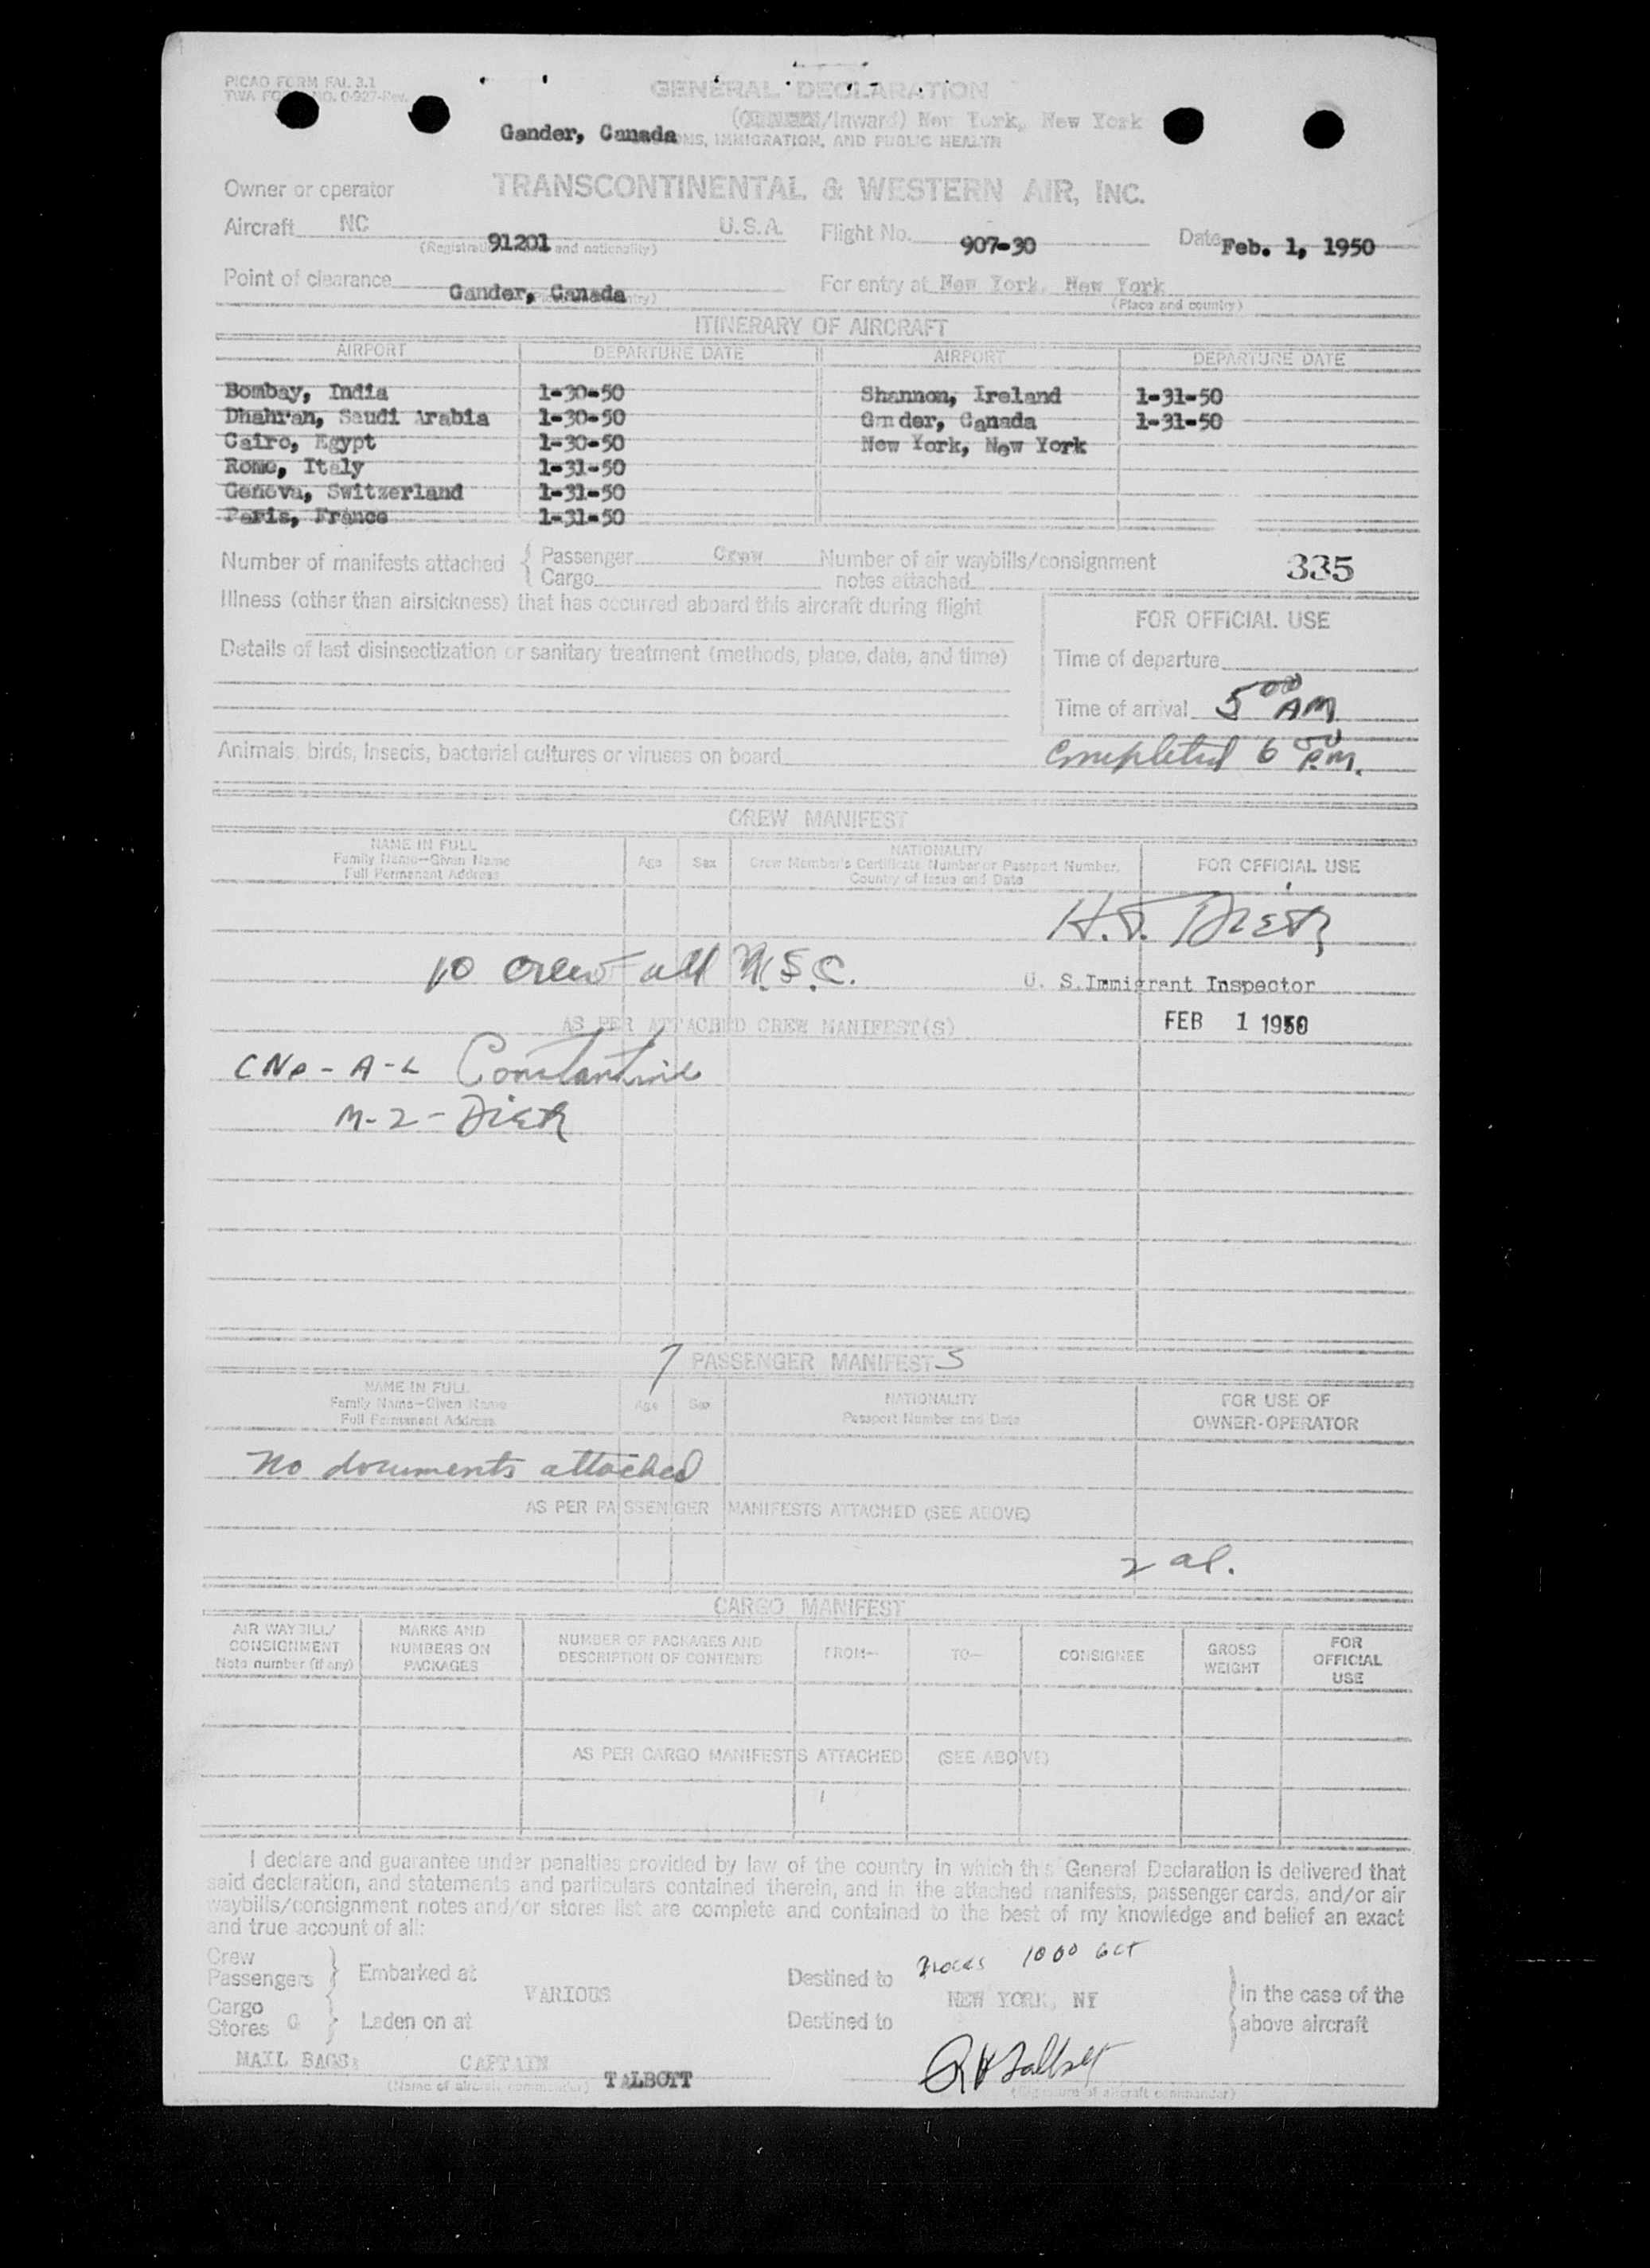 PICAO FORM FAL 3.1
TWA FORM NO. 0-927-Rev.
GENERAL DECLARATION
(/Inward) New York, New York
Gander, Canada
IMMIGRATION, AND PUBLIC HEALTH
Owner or operator TRANSCONTINENTAL & WESTERN AIR, INC.
Aircraft NC 91201 U.S.A. Flight No. 907-30 Date Feb. 1, 1950
and nationality)
Point of clearance Gander, Canada For entry at New York, New York
(Place and country)
ITINERARY OF AIRCRAFT
AIRPORT DEPARTURE DATE AIRPORT DEPARTURE DATE
Bombay, India 1-30-50 Shannon, Ireland 1-31-50
Dhahran, Saudi Arabia 1-30-50 Gander, Canada 1-31-50
Cairo, Egypt 1-30-50 New York, New York
Rome, Italy 1-31-50
Geneva, Switzerland 1-31-50
Paris, France 1-31-50
Number of manifests attached { Passenger Crew Number of air waybills/consignment 335
Cargo notes attached
Illness (other than airsickness) that has occurred aboard this aircraft during flight
FOR OFFICIAL USE
Details of last disinsectization or sanitary treatment (methods, place, date, and time)
Time of departure
Time of arrival 5 00 AM
Animals, birds, insects, bacterial cultures or viruses on board
Completed 6 00 P.M.
CREW MANIFEST
NAME IN FULL
Family Name—Given Name
Full Permanent Address
Age Sex
NATIONALITY
Crew Member's Certificate Number or Passport Number,
Country of Issue and Date
FOR OFFICIAL USE
10 crew all U.S.C.
U. S. Immigrant Inspector
AS PER ATTACHED CREW MANIFEST(S)
FEB 1 1950
Constantine
PASSENGER MANIFEST
NAME IN FULL
Family Name—Given Name
Full Permanent Address
Age Sex
NATIONALITY
Passport Number and Date
FOR USE OF
OWNER-OPERATOR
No documents attached
AS PER PASSENGER MANIFESTS ATTACHED (SEE ABOVE)
2 al.
CARGO MANIFEST
AIR WAYBILL/
CONSIGNMENT
Note number (if any)
MARKS AND
NUMBERS ON
PACKAGES
NUMBER OF PACKAGES AND
DESCRIPTION OF CONTENTS
FROM—
TO—
CONSIGNEE
GROSS
WEIGHT
FOR
OFFICIAL
USE
AS PER CARGO MANIFESTS ATTACHED (SEE ABOVE)
I declare and guarantee under penalties provided by law of the country in which this General Declaration is delivered that
said declaration, and statements and particulars contained therein, and in the attached manifests, passenger cards, and/or air
waybills/consignment notes and/or stores list are complete and contained to the best of my knowledge and belief an exact
and true account of all:
Crew
Passengers } Embarked at VARIOUS Destined to 1000 GCT
NEW YORK, NY
Cargo
Stores } Laden on at Destined to
in the case of the
above aircraft
MAIL BAGS: CAPTAIN TALBOTT
(Name of aircraft commander)
(Signature of aircraft commander)